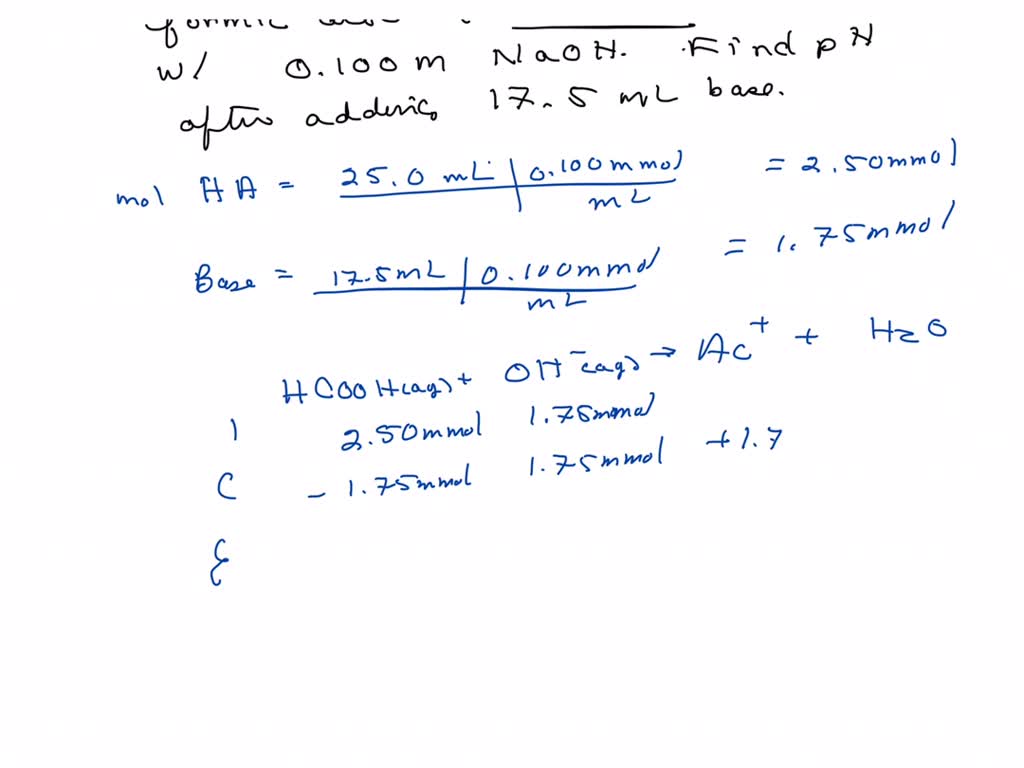 w/ 0.100 m NaOH. Find pH
after adding 17.5 mL base.
mol HA = 25.0 mL | 0.100 mmol = 2.50 mmol
mL
Base = 17.5 mL | 0.100 mmol = 1.75 mmol
mL
HCOOH(aq) + OH⁻(aq) → Ac⁺ + H2O
I 2.50 mmol 1.75 mmol
C - 1.75 mmol 1.75 mmol +1.7
E